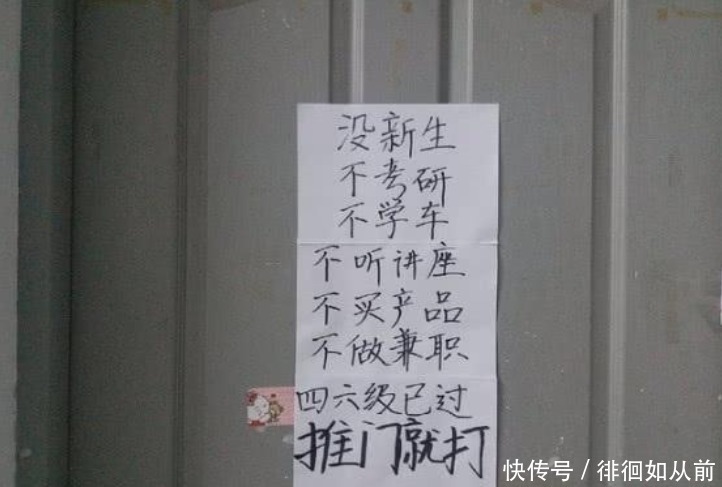 没新生
不考研
不学车
不听讲座
不买产品
不做兼职
四六级已过
推门就打
快传号／徘徊如从前